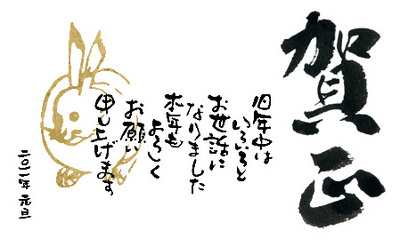 賀正
旧年中は
いろいろと
お世話に
なりました
本年も
よろしく
お願い
申し上げます
二〇一一年 元旦